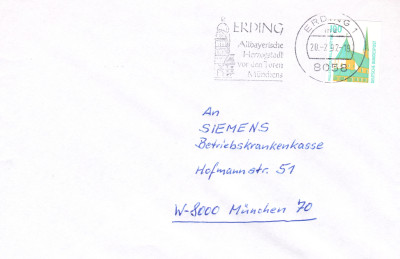 ERDING
Altbayerische
Herzogstadt
vor den Toren
Münchens
ERDING 1
8058
100
An
SIEMENS
Betriebskrankenkasse
Hofmannstr. 51
W-8000 München 70